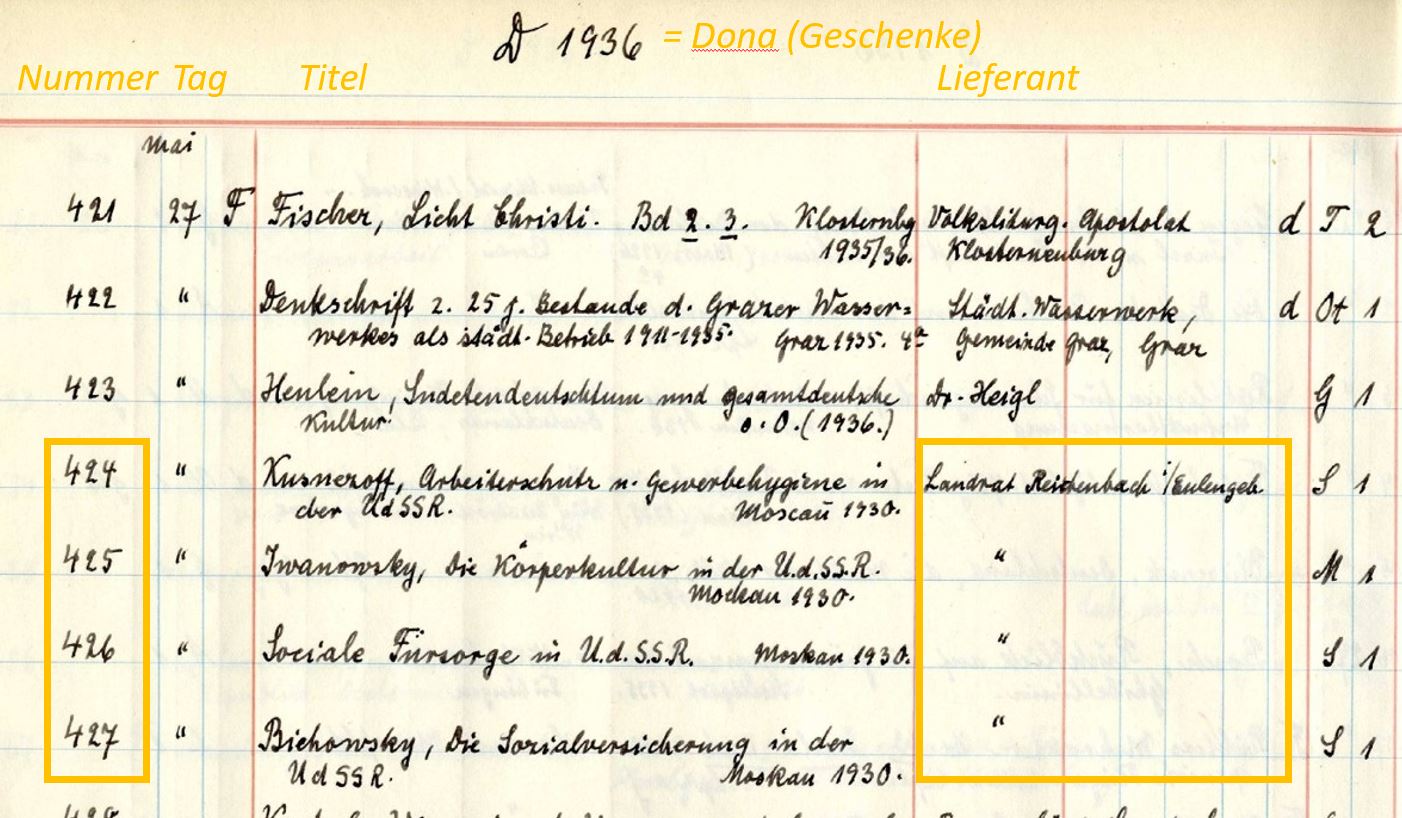 D 1936 = Dona (Geschenke)
Nummer Tag Titel Lieferant
Mai
421 27 F Fischer, Licht Christi. Bd 2. 3. Klosternbg Volksliturg. Apostolat d T 2
1935/36. Klosterneuburg
422 " Denkschrift z. 25 j. Bestande d. Grazer Wasser= Städt. Wasserwerk, d Ot 1
werkes als städt. Betrieb 1911-1935. Graz 1935. 4° Gemeinde Graz, Graz
423 " Henlein, Sudetendeutschtum und gesamtdeutsche Dr. Heigl G 1
Kultur. o. O. (1936.)
424 " Kusnezoff, Arbeiterschutz u. Gewerbehygiene in Landrat Reichenbach i/Eulengeb. S 1
der UdSSR. Moscau 1930.
425 " Iwanowsky, Die Körperkultur in der U.d.SS.R. " M 1
Moskau 1930.
426 " Sociale Fürsorge in U.d.S.S.R. Moskau 1930. " S 1
427 " Bichowsky, Die Sozialversicherung in der " S 1
UdSSR. Moskau 1930.